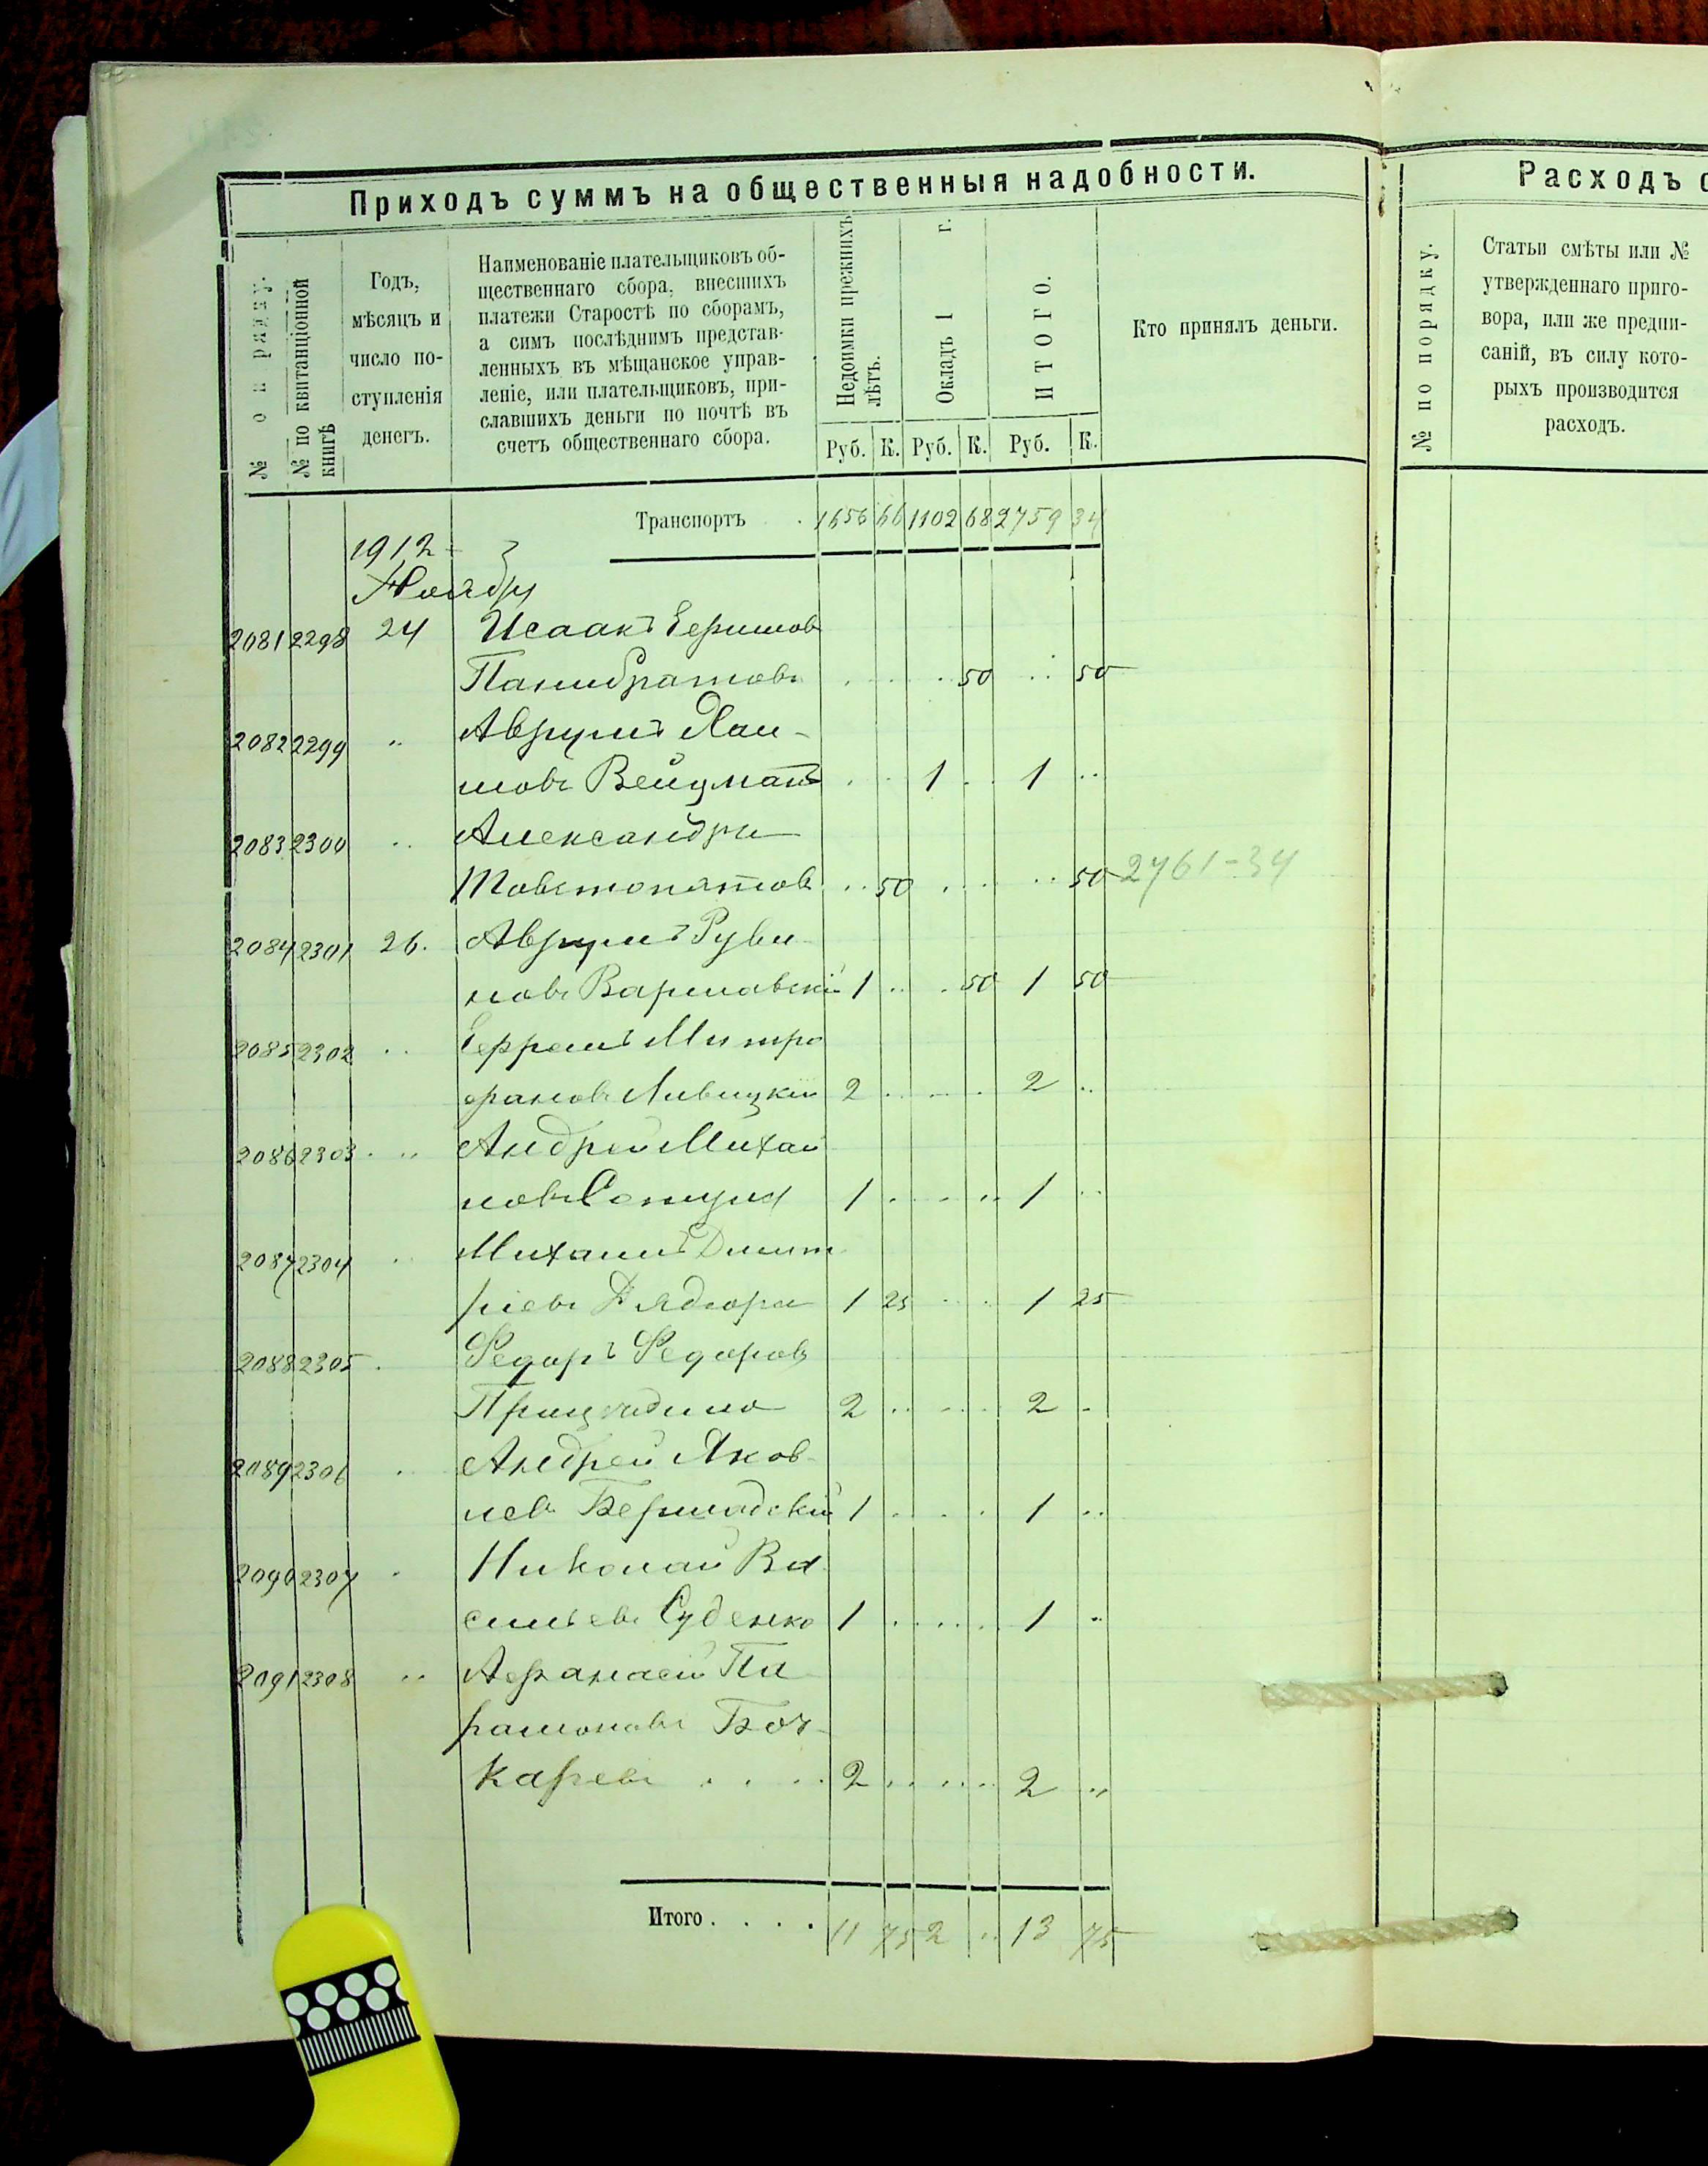 Приходъ суммъ на общественныя надобности.
№ по ряду.
№ по квитанціонной книгѣ
Годъ, мѣсяцъ и число поступленія денегъ.
Наименованіе плательщиковъ об-
щественнаго сбора, внесшихъ
платежи Старостѣ по сборамъ,
а симъ послѣднимъ представ-
ленныхъ въ мѣщанское управ-
леніе, или плательщиковъ, при-
славшихъ деньги по почтѣ въ
счетъ общественнаго сбора.
Недоимки прежнихъ лѣтъ.
Окладъ 1 г.
ИТОГО.
Кто принялъ деньги.
Руб. К. Руб. К. Руб. К.
Транспортъ . 1656 66 1102 68 2759 34
1912
Ноября
2081 2298 24 Исаакъ
Панибратовъ 50 50
2082 2299 " Аврумъ Хаи-
мовъ Вейцманъ 1 1
2083 2300 " Александръ
Товстопятовъ 50 50 2761-34
2084 2301 26. Аврумъ Руви-
новъ Варшавскій 1 50 1 50
2085 2302 " Ефремъ Митро
фановъ Ливицкій 2 2
2086 2303 " Андрей Михай
ловъ 1 1
2087 2304 " Михаилъ Димит
ріевъ Дядюра 1 25 1 25
2088 2305 Федоръ Федоровъ
2 2
2089 2306 Андрей Яков-
левъ Бершадскій 1 1
2090 2307 Николай Ва
сильевъ Суденко 1 1
2091 2308 " Афанасій Па
рамоновъ Боч-
каревъ 2 2
Итого . . . . 11 75 2 13 75
Расходъ с
№ по порядку.
Статьи смѣты или №
утвержденнаго приго-
вора, или же предпи-
саній, въ силу кото-
рыхъ производится
расходъ.